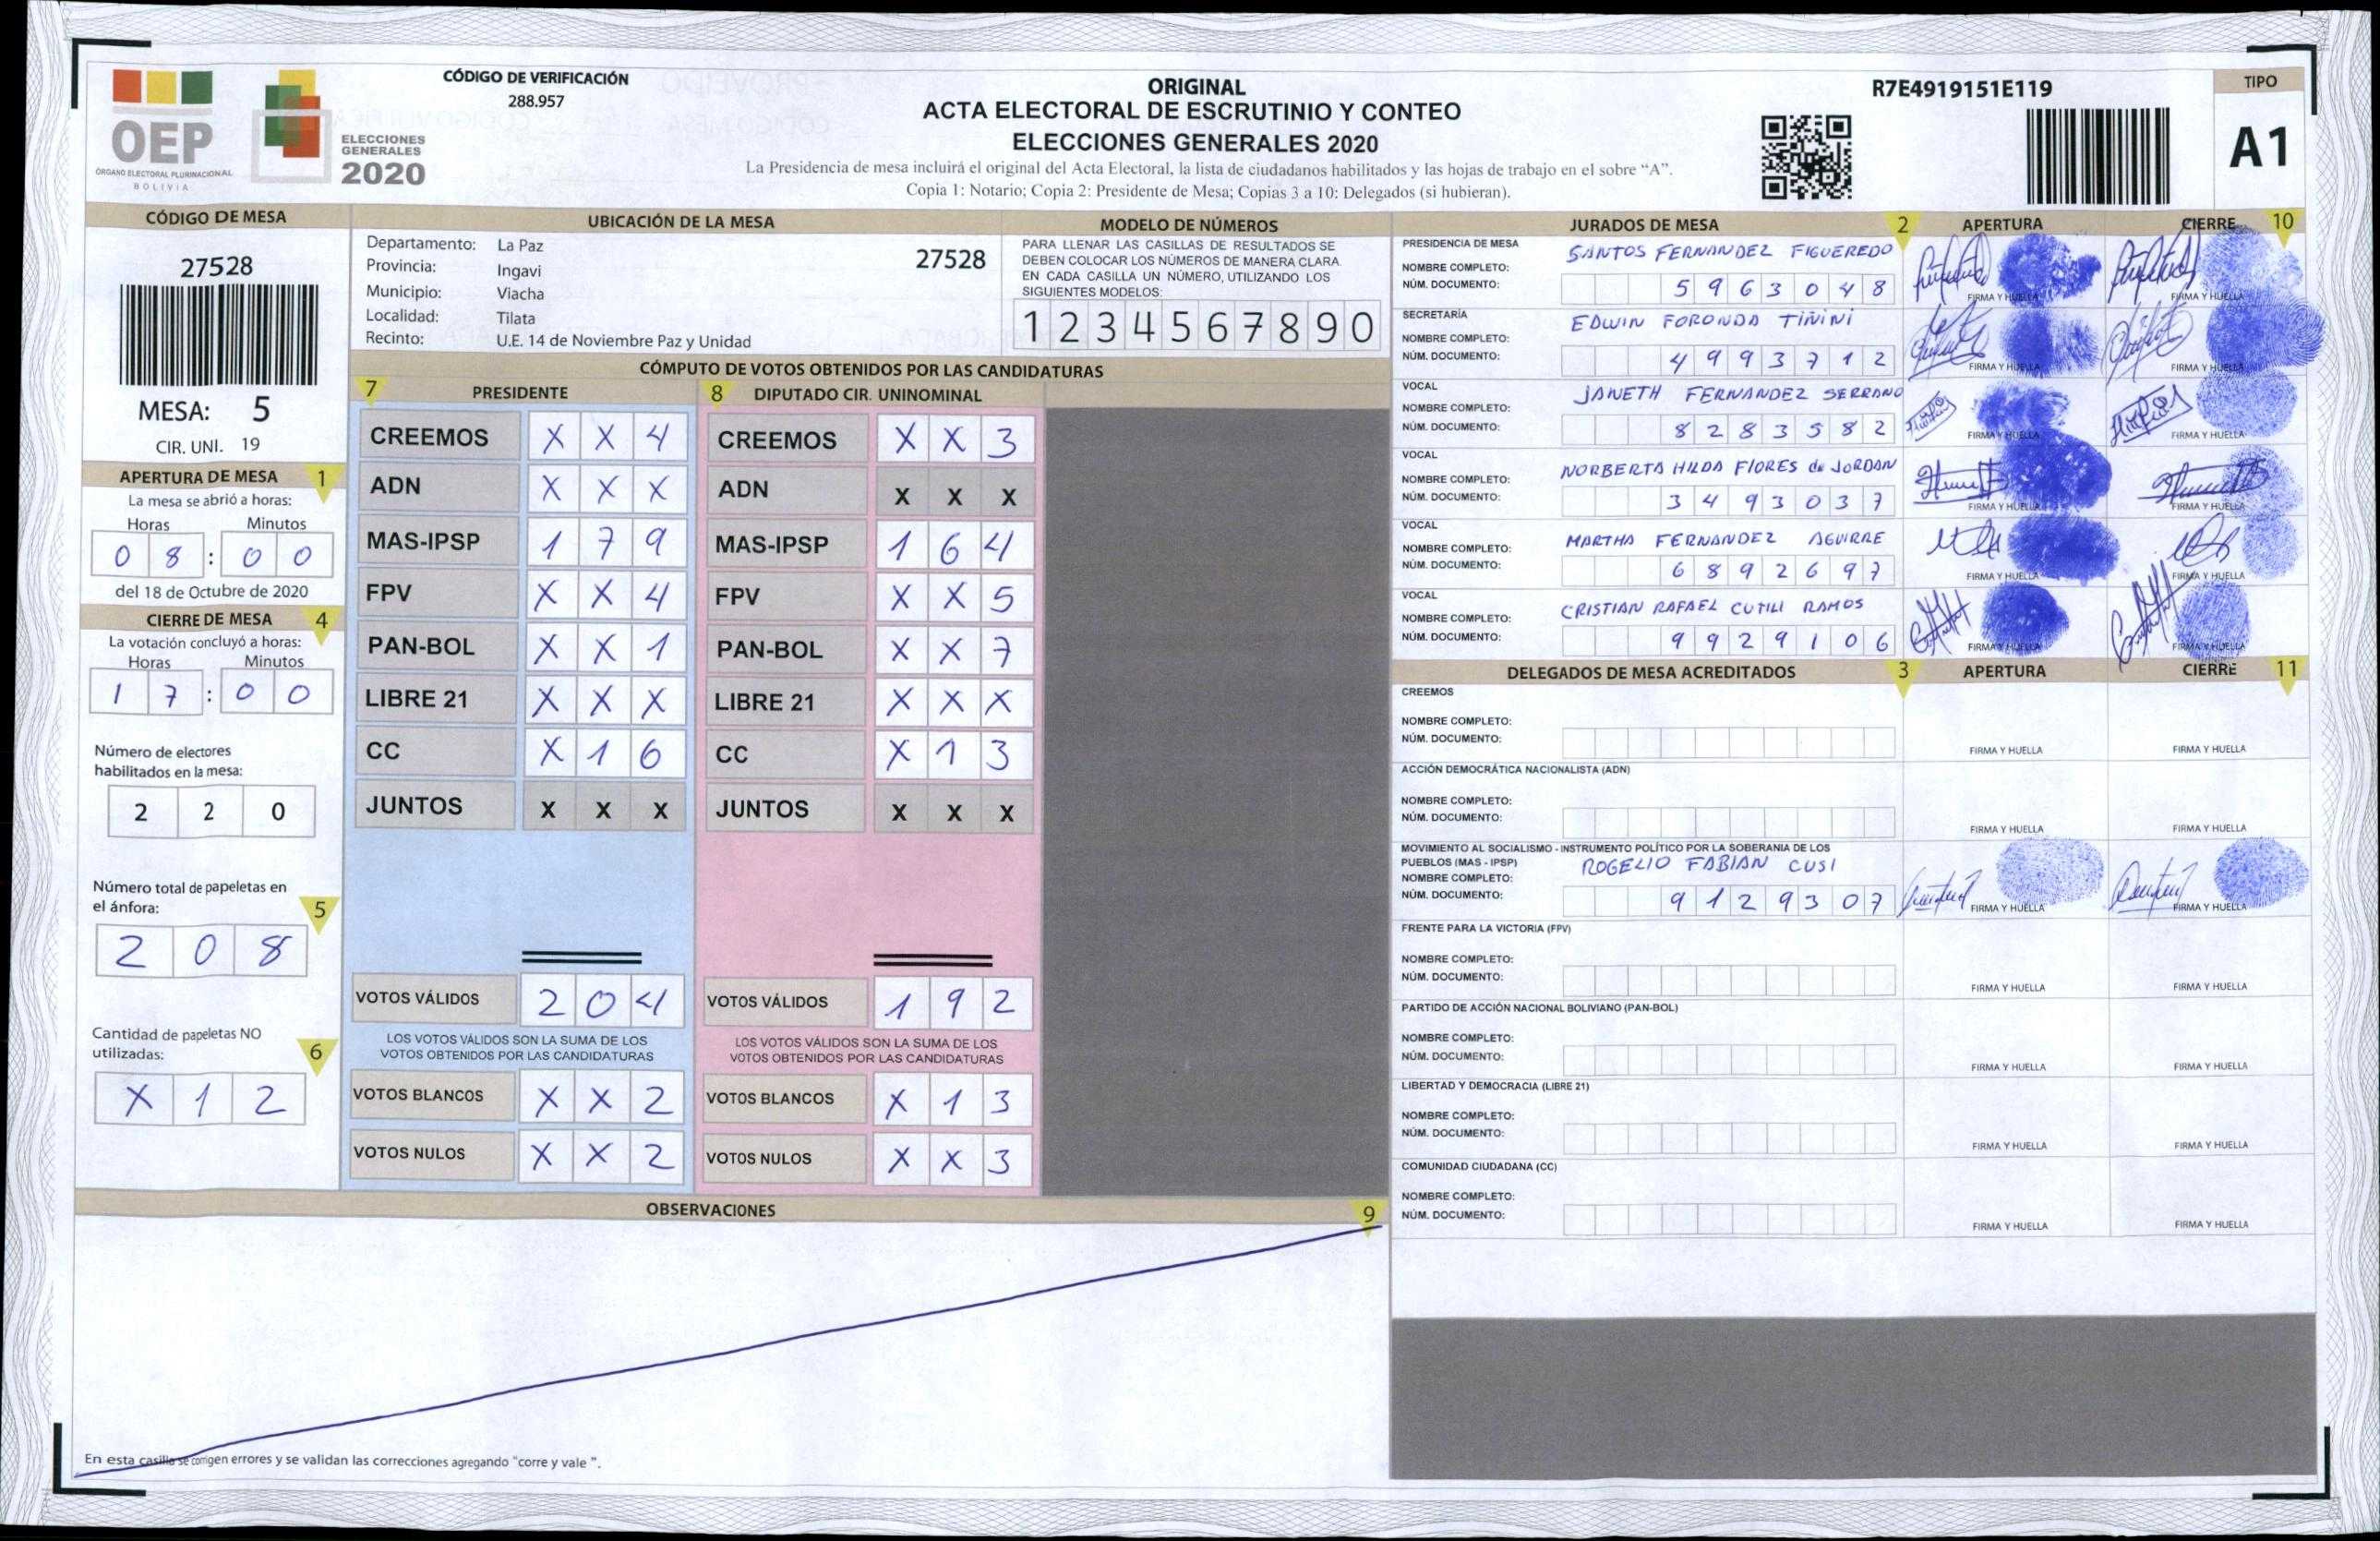 OEP
ÓRGANO ELECTORAL PLURINACIONAL
BOLIVIA
ELECCIONES
GENERALES
2020
CÓDIGO DE VERIFICACIÓN
288.957
ORIGINAL
ACTA ELECTORAL DE ESCRUTINIO Y CONTEO
ELECCIONES GENERALES 2020
La Presidencia de mesa incluirá el original del Acta Electoral, la lista de ciudadanos habilitados y las hojas de trabajo en el sobre “A”.
Copia 1: Notario; Copia 2: Presidente de Mesa; Copias 3 a 10: Delegados (si hubieran).
R7E4919151E119
TIPO
A1
CÓDIGO DE MESA
27528
MESA: 5
CIR. UNI. 19
APERTURA DE MESA 1
La mesa se abrió a horas:
Horas Minutos
0 8 : 0 0
del 18 de Octubre de 2020
CIERRE DE MESA 4
La votación concluyó a horas:
Horas Minutos
1 7 : 0 0
Número de electores
habilitados en la mesa:
2 2 0
Número total de papeletas en
el ánfora: 5
2 0 8
Cantidad de papeletas NO
utilizadas: 6
X 1 2
UBICACIÓN DE LA MESA
Departamento: La Paz 27528
Provincia: Ingavi
Municipio: Viacha
Localidad: Tilata
Recinto: U.E. 14 de Noviembre Paz y Unidad
MODELO DE NÚMEROS
PARA LLENAR LAS CASILLAS DE RESULTADOS SE
DEBEN COLOCAR LOS NÚMEROS DE MANERA CLARA.
EN CADA CASILLA UN NÚMERO, UTILIZANDO LOS
SIGUIENTES MODELOS:
1 2 3 4 5 6 7 8 9 0
CÓMPUTO DE VOTOS OBTENIDOS POR LAS CANDIDATURAS
7 PRESIDENTE
CREEMOS X X 4
ADN X X X
MAS-IPSP 1 7 9
FPV X X 4
PAN-BOL X X 1
LIBRE 21 X X X
CC X 1 6
JUNTOS X X X
VOTOS VÁLIDOS 2 0 4
LOS VOTOS VÁLIDOS SON LA SUMA DE LOS
VOTOS OBTENIDOS POR LAS CANDIDATURAS
VOTOS BLANCOS X X 2
VOTOS NULOS X X 2
8 DIPUTADO CIR. UNINOMINAL
CREEMOS X X 3
ADN X X X
MAS-IPSP 1 6 4
FPV X X 5
PAN-BOL X X 7
LIBRE 21 X X X
CC X 1 3
JUNTOS X X X
VOTOS VÁLIDOS 1 9 2
LOS VOTOS VÁLIDOS SON LA SUMA DE LOS
VOTOS OBTENIDOS POR LAS CANDIDATURAS
VOTOS BLANCOS X 1 3
VOTOS NULOS X X 3
OBSERVACIONES 9
En esta casilla se corrigen errores y se validan las correcciones agregando "corre y vale ".
JURADOS DE MESA 2 APERTURA CIERRE 10
PRESIDENCIA DE MESA
NOMBRE COMPLETO: SANTOS FERNANDEZ FIGUEREDO
NÚM. DOCUMENTO: 5 9 6 3 0 4 8
FIRMA Y HUELLA FIRMA Y HUELLA
SECRETARÍA
NOMBRE COMPLETO: EDWIN FORONDA TIÑINI
NÚM. DOCUMENTO: 4 9 9 3 7 1 2
FIRMA Y HUELLA FIRMA Y HUELLA
VOCAL
NOMBRE COMPLETO: JANETH FERNANDEZ SERRANO
NÚM. DOCUMENTO: 8 2 8 3 5 8 2
FIRMA Y HUELLA FIRMA Y HUELLA
VOCAL
NOMBRE COMPLETO: NORBERTA HILDA FLORES de JORDAN
NÚM. DOCUMENTO: 3 4 9 3 0 3 7
FIRMA Y HUELLA FIRMA Y HUELLA
VOCAL
NOMBRE COMPLETO: MARTHA FERNANDEZ AGUIRRE
NÚM. DOCUMENTO: 6 8 9 2 6 9 7
FIRMA Y HUELLA FIRMA Y HUELLA
VOCAL
NOMBRE COMPLETO: CRISTIAN RAFAEL CUTILI RAMOS
NÚM. DOCUMENTO: 9 9 2 9 1 0 6
FIRMA Y HUELLA FIRMA Y HUELLA
DELEGADOS DE MESA ACREDITADOS 3 APERTURA CIERRE 11
CREEMOS
NOMBRE COMPLETO:
NÚM. DOCUMENTO:
FIRMA Y HUELLA FIRMA Y HUELLA
ACCIÓN DEMOCRÁTICA NACIONALISTA (ADN)
NOMBRE COMPLETO:
NÚM. DOCUMENTO:
FIRMA Y HUELLA FIRMA Y HUELLA
MOVIMIENTO AL SOCIALISMO - INSTRUMENTO POLÍTICO POR LA SOBERANIA DE LOS
PUEBLOS (MAS - IPSP)
NOMBRE COMPLETO: ROGELIO FABIAN CUSI
NÚM. DOCUMENTO: 9 1 2 9 3 0 7
FIRMA Y HUELLA FIRMA Y HUELLA
FRENTE PARA LA VICTORIA (FPV)
NOMBRE COMPLETO:
NÚM. DOCUMENTO:
FIRMA Y HUELLA FIRMA Y HUELLA
PARTIDO DE ACCIÓN NACIONAL BOLIVIANO (PAN-BOL)
NOMBRE COMPLETO:
NÚM. DOCUMENTO:
FIRMA Y HUELLA FIRMA Y HUELLA
LIBERTAD Y DEMOCRACIA (LIBRE 21)
NOMBRE COMPLETO:
NÚM. DOCUMENTO:
FIRMA Y HUELLA FIRMA Y HUELLA
COMUNIDAD CIUDADANA (CC)
NOMBRE COMPLETO:
NÚM. DOCUMENTO:
FIRMA Y HUELLA FIRMA Y HUELLA